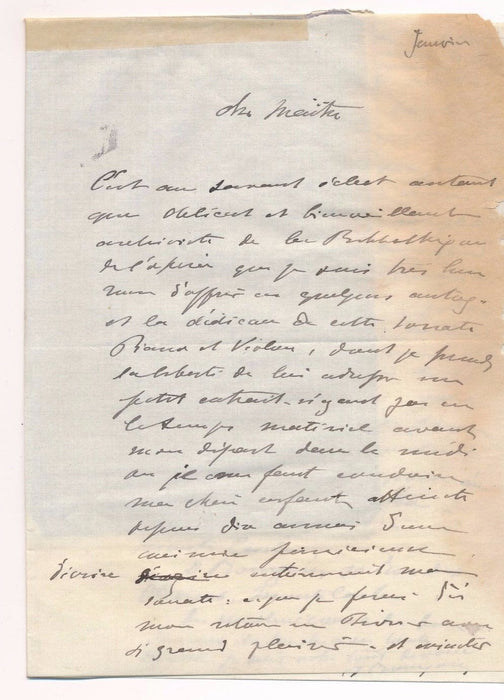 Janvier
Cher Maître
C'est au savant éclect autant
que délicat et bienveillant
archiviste de la Bibliothèque
de l'opéra que je suis très heu
reux d'offrir en quelques
et la dédicace de cette sonate
Piano et Violon, dont je prends
la liberté de lui adresser un
petit extrait n'ayant pas eu
le temps matériel avant
mon départ dans le midi
où il me faut conduire
ma chère enfant atteinte
depuis dix années d'une
anémie pernicieuse,
d'écrire entièrement ma
sonate: ce que je ferai dès
mon retour en Février avec
si grand plaisir - et